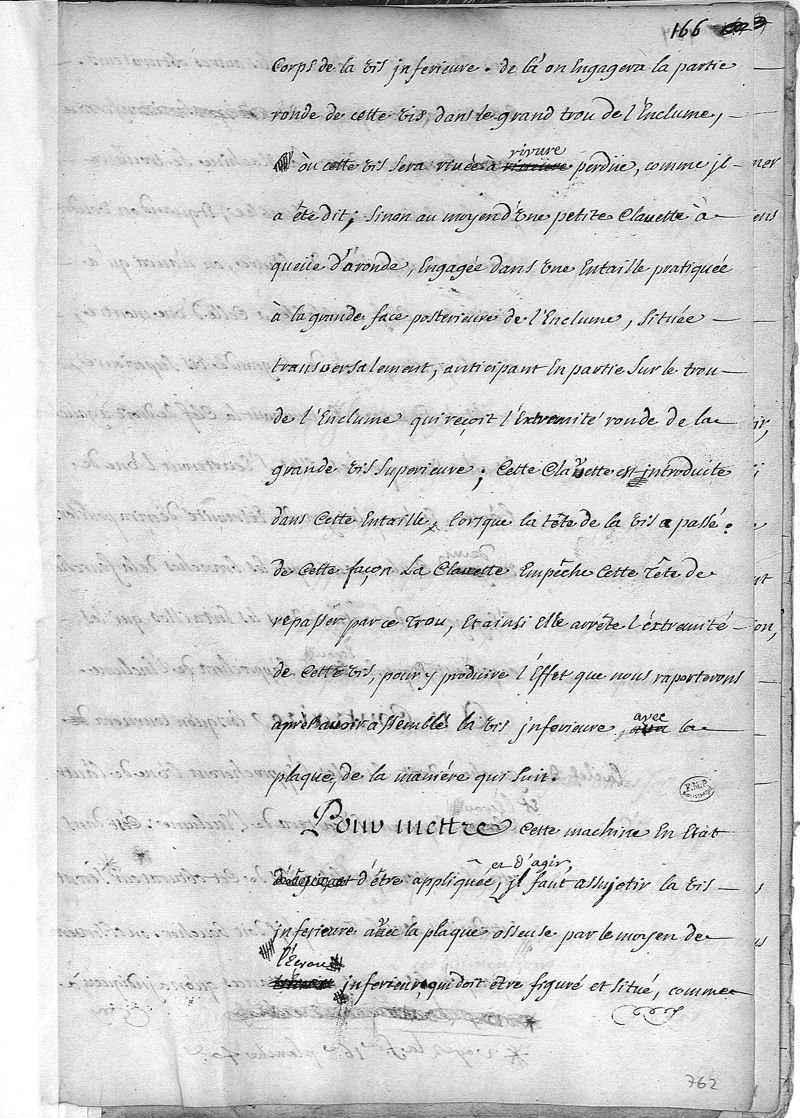 166
Corps de la vis jnferieure. de là on Engagera la partie
ronde de cette vis, dans le grand trou de l'Enclume,
où cette vis sera rivée a rivure perdüe, comme jl
a été dit; Sinon au moyen d'Une petite Clavette à
queüe d'aronde, Engagée dans Une Entaille pratiquée
à la grande face posterieure de l'Enclume, Située
transversalement, anticipant En partie Sur le trou
de l'Enclume qui reçoit l'Extremité ronde de la
grande vis Superieure; Cette Clavette est introduite
dans Cette Entaille, lorsque la tête de la vis a passé.
de Cette façon La Clavette Empêche Cette Tête de
repasser par ce Trou, Et ainsi Elle arrête l'éxtremité
de Cette vis, pour y produire l'Effet que nous raporterons
aprés avoir assemblé la vis jnferieure, avec la
plaque, de la maniére qui Suit.
Pour mettre Cette machine En Etat
et d'agir,
d'être appliquée, jl faut assujetir la vis
jnferieure avec la plaque osseuse par le moyen de
l'Ecrou
jnferieur, qui doit être figuré et Situé, comme
762